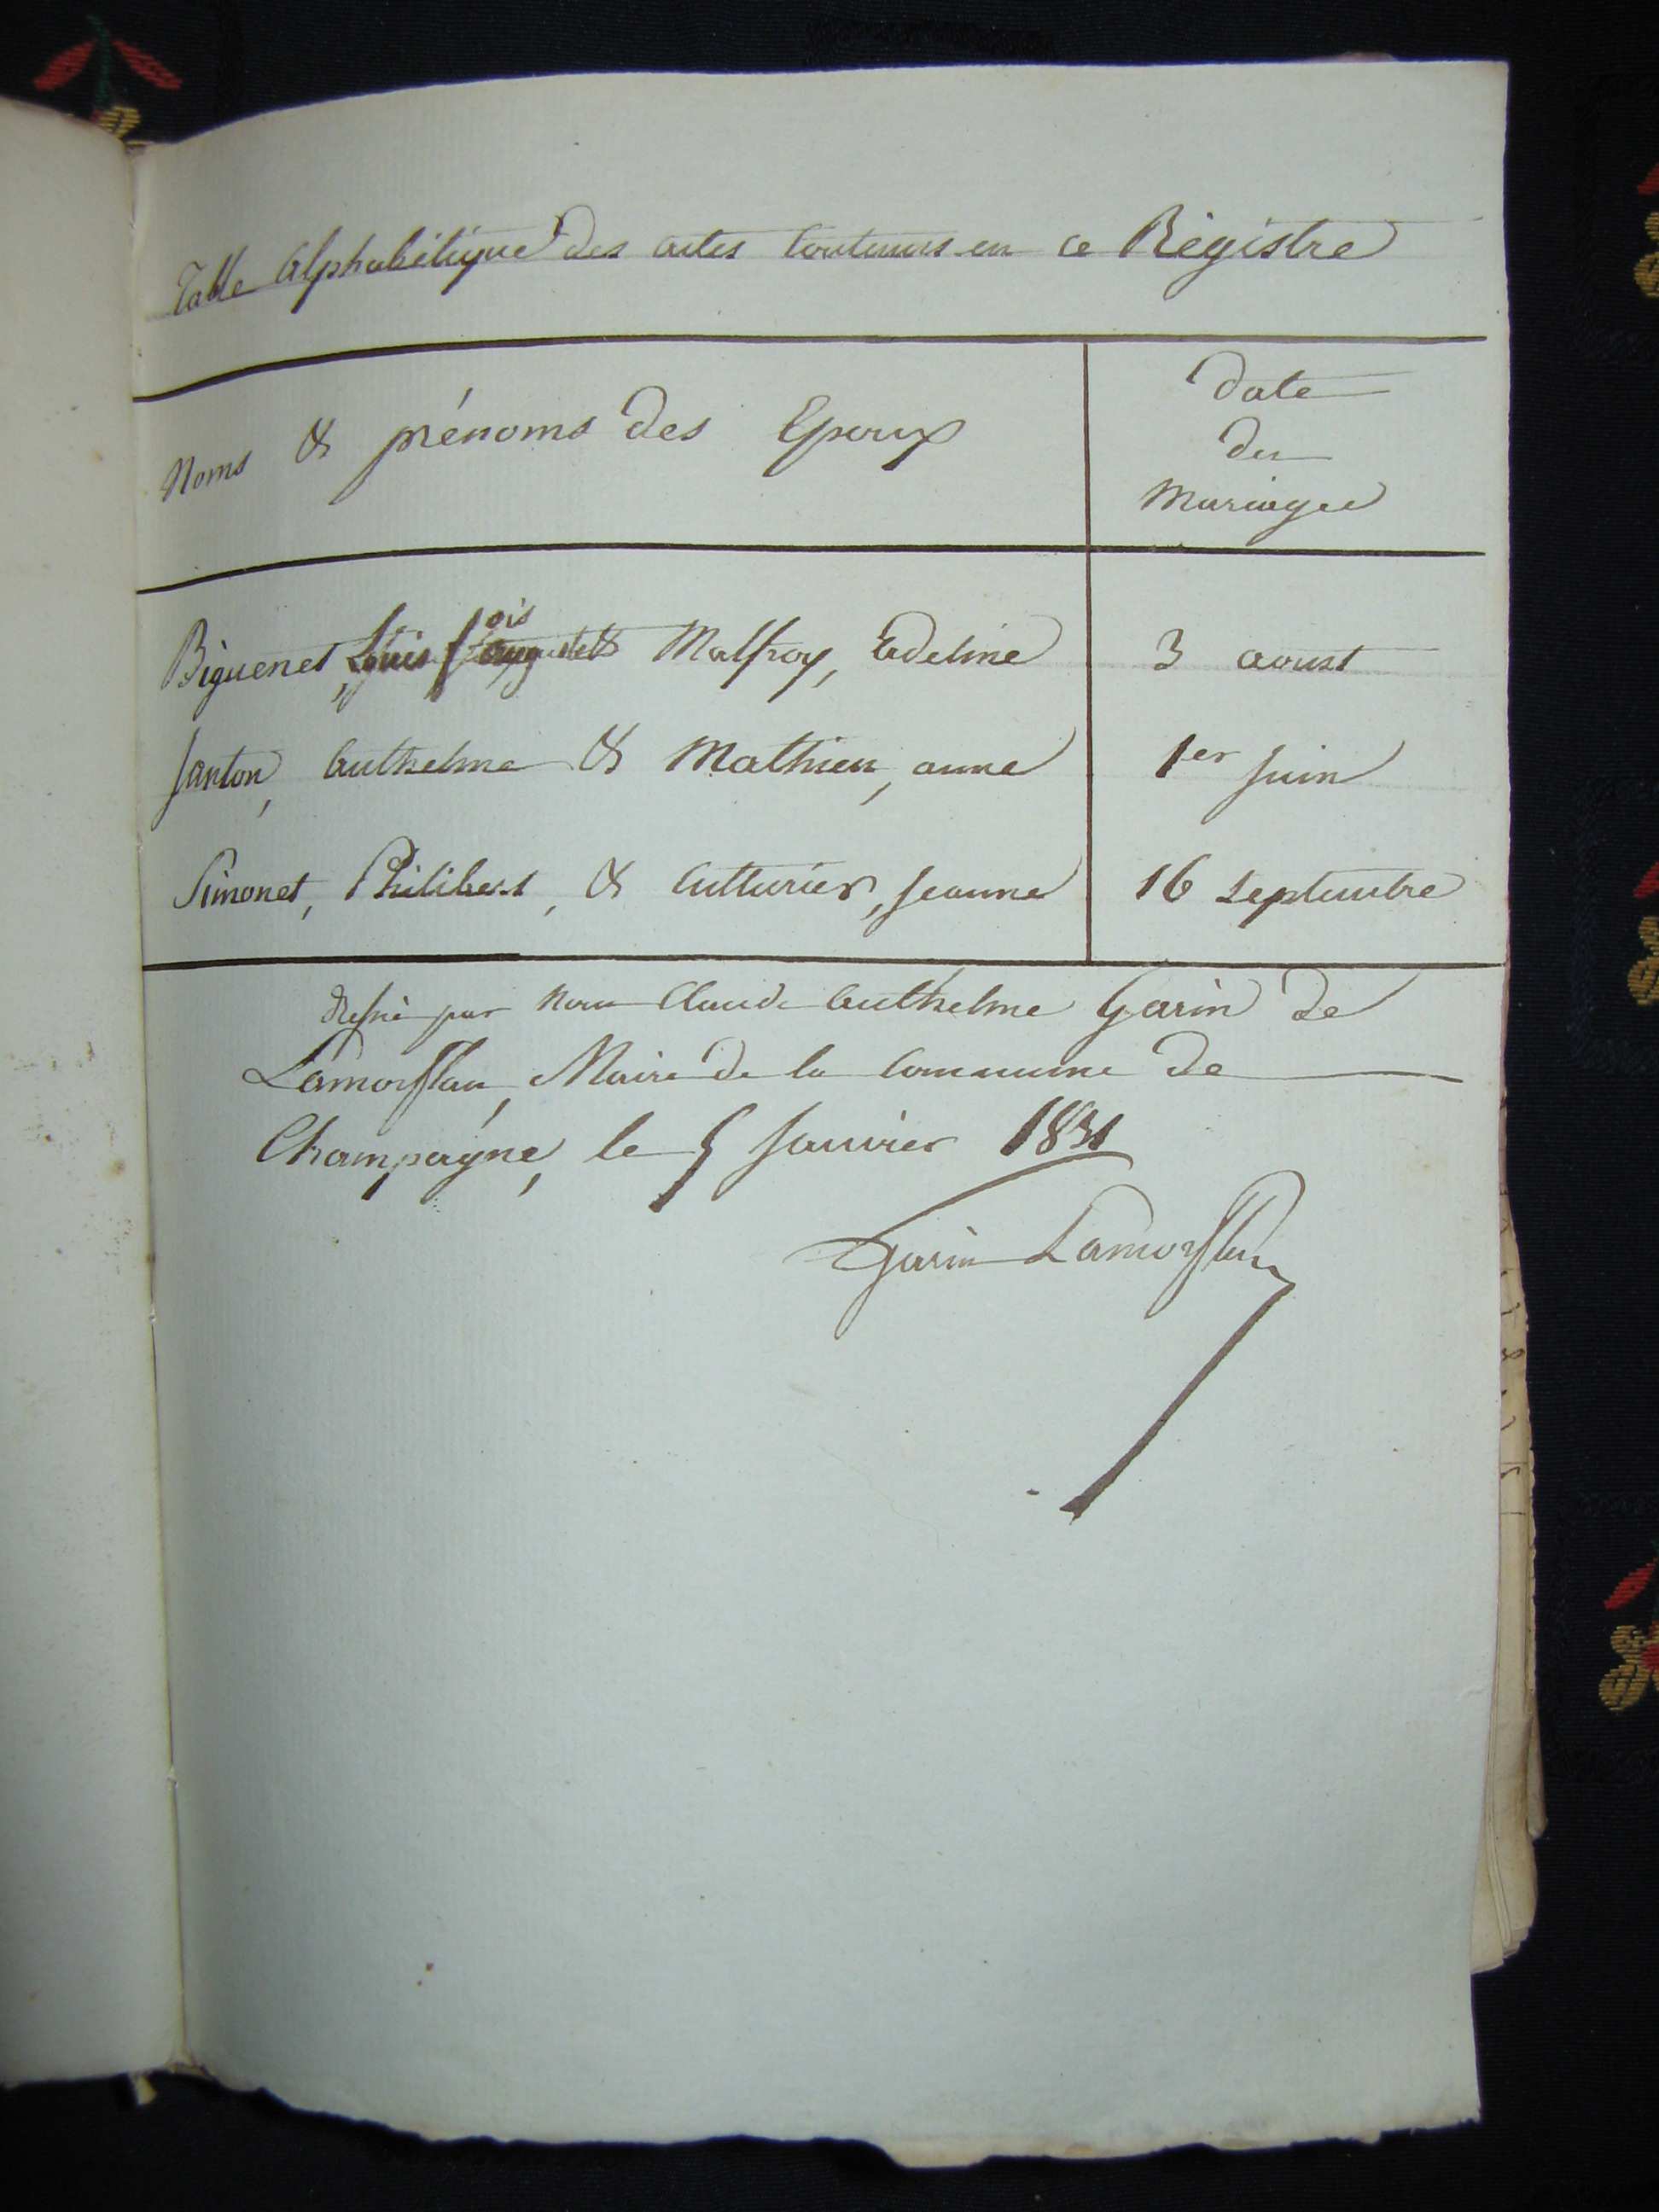 Table Alphabétique des actes Contenus en ce Régistre
Noms & prénoms des Epoux
date
du
Mariage
Biguenet, Louis fois auguste & Malfroy, Adeline 3 aoust
Janton, Anthelme & Mathieu, anne 1er Juin
Simonet, Philibert, & Cutturier, Jeanne 16 septembre
Dressé par Nous Claude Anthelme Garin De
Lamorflan, Maire De la Commune De
Champagne, le 5 Janvier 1831
Garin Lamorflan